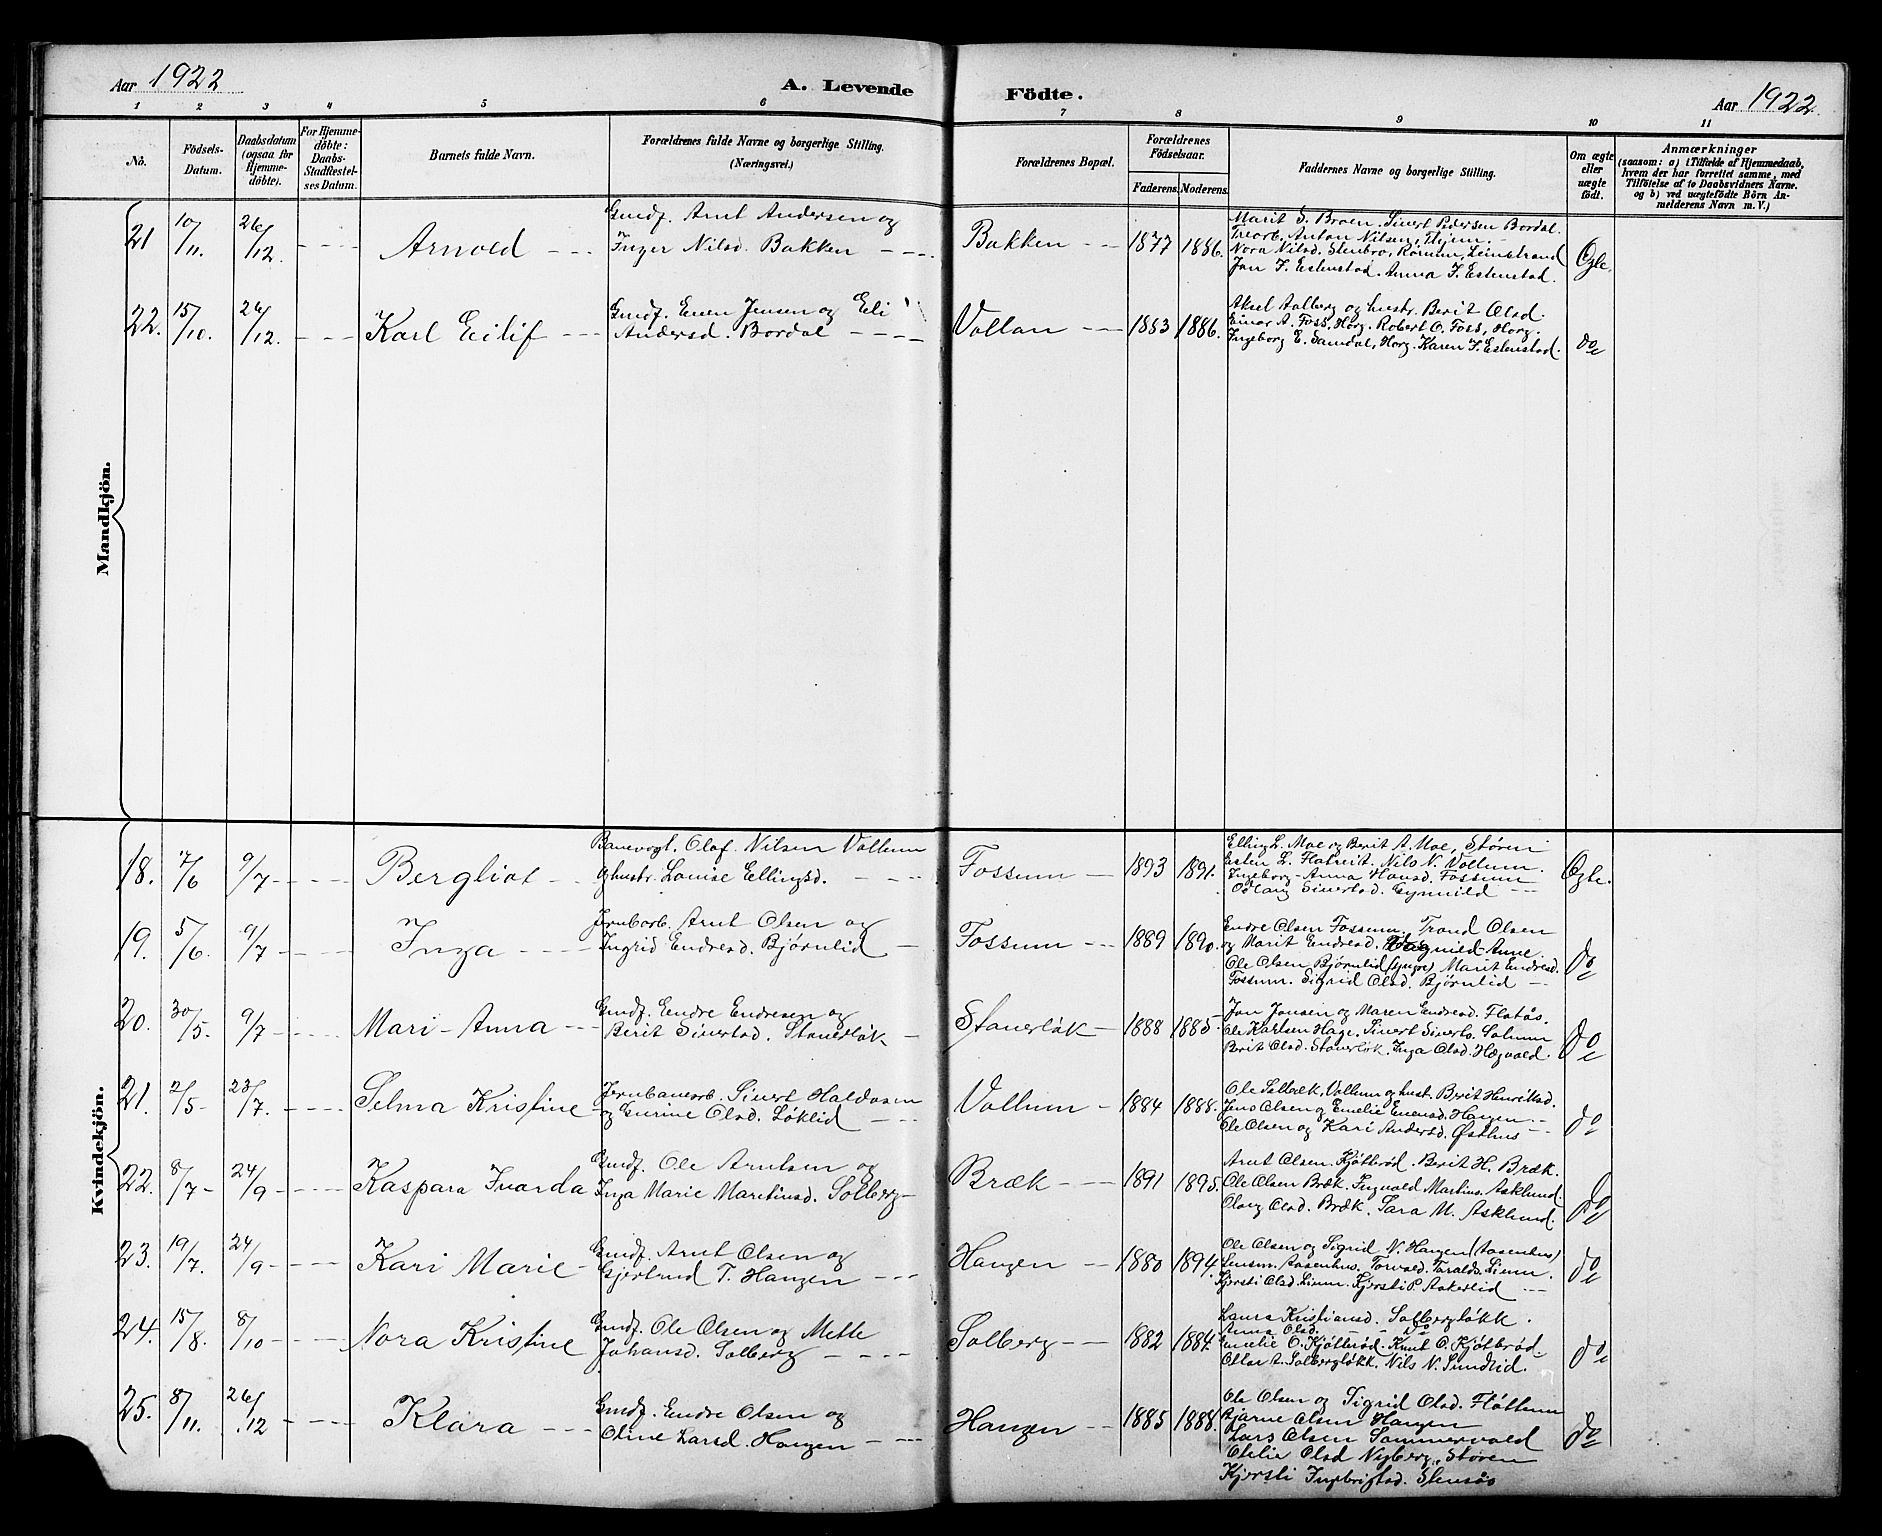 Aar 1922 A. Levende Födte. Aar 1922.
1 2 3 4 5 6 7 8 9 10 11
No. Födsels-Datum. Daabsdatum (ogsaa for Hjemmedöbte). For Hjemmedöbte: Daabs-Stadfæstelses Datum. Barnets fulde Navn. Forældrenes fulde Navne og borgerlige Stilling. (Næringsvei.) Forældrenes Bopæl. Forældrenes Födselsaar. Faderens. Moderens. Faddernes Navne og borgerlige Stilling. Om ægte eller uægte födt. Anmærkninger (saasom: a) i Tilfælde af Hjemmedaab, hvem der har forrettet samme, med Tilföielse af to Daabsvidners Navne. og b) ved uægtefödte Börn Anmelderens Navn m. V.)
Mandkjön.
21 10/11. 26/12. Arnold Gmdf. Arnt Andersen og
Inger Nilsd. Bakken Bakken 1877 1886. Marit S. Broen. Sivert Pedersen Bordal.
Anton Nilsen, Thjem.
Nora Nilsd. Stenbro, Leinstrand
Jon J. Estenstad. Anna J. Estenstad. Egte.
22. 15/10. 26/12. Karl Eilif Gmdf. Even Jensen og Eli
Andersd. Bordal Vollan 1883 1886. Aksel Aalberg og hustr. Berit Olsd.
Einar A. Foss, Horg. Robert O. Foss, Horg.
Ingeborg E. Samdal, Horg. Karen J. Estenstad. do
Kvindekjön.
18. 17/6 9/7 Bergliot Banevogt. Olaf Nilsen Vollum
og hustr. Louise Ellingsd. Fossum 1893 1891. Elling L. Moe og Berit A. Moe, Støren
Esten L. Flatreit. Nils N. Vollum.
Ingeborg-Anna Hansd. Fossum
Oslaug Sivertsd. Egte.
19. 5/6. 9/7 Inga Jernbarb. Arnt Olsen og
Ingrid Endresd. Bjørnlid Fossum 1889 1890. Endre Olsen Fossum, Trond Olsen
og Marit Endresd. Anne
Ole Olsen Bjørnlid (yngre) Marit Endresd.
Fossum. Sigrid Olsd. Bjørnlid do
20. 30/5. 9/7 Mari-Anna Gmdf. Endre Endresen og
Berit Sivertsd. Staverløk Staverløk 1888 1885. Jon Jonsen og Maren Endresd. Flatås.
Ole Karlsen Hage. Sivert Siverts. Solum
Berit Olsd. Staverløk. Inga Olsd. Hægvold. do
21. 2/5 23/7. Selma Kristine Jernbanearb. Sivert Haldosen
og Eurine Olsd. Løklid Vollum 1884 1888. Ole Selbæk, Vollum og hust. Berit Henriksd.
Jens Olsen og Emelie Evensd. Haugen
Ole Olsen og Kari Andersd. Østhus do
22. 8/7 24/9 Kaspara Ivarda Gmdf. Ole Arntsen og
Inga Marie Martinusd. Solberg Bræk 1891 1895. Arnt Olsen. Kjøtbrød. Berit H. Bræk.
Ole Olsen Bræk. Ingvald Martins. Asklund.
Olaug Olsd. Bræk. Sara M. Asklund. do
23. 19/7. 24/9 Kari Marie Gmdf. Arnt Olsen og
Gjertrud T. Haugen Haugen 1880 1894. Ole Olsen og Sigrid N. Haugen (Aasenhus)
Aasenhus. Torvald. Taralds. Lium.
Kjersti Olsd. Lium. Kjersti P. Aakerlid do
24. 15/8. 8/10 Nora Kristine Gmdf. Ole Olsen og Mette
Johansd. Solberg Solberg 1882 1884. Laura Kristiansd. Solbergløkk.
Anna Olsd. Do
Amelie O. Kjøtbrød. Knut O. Kjøtbrød.
Ottar A. Solbergløkk. Nils N. Sundlid. do
25. 8/11. 26/12 Klara Gmdf. Endre Olsen og
Oline Larsd. Haugen Haugen 1885 1888. Ole Olsen og Sigrid Olsd. Fløttum
Bjarne Olsen Haugen
Lars Olsen Sommervold
Otelie Olsd Nyberg, Støren
Kjersti Ingebrigtsd. Stensås do